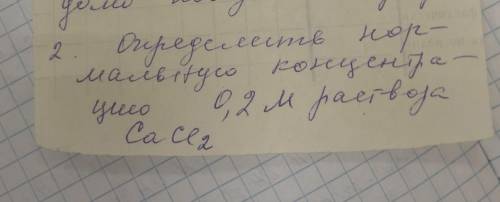 2. Определить нор-
мальную концентра-
цию 0,2 М раствора
CaCl2